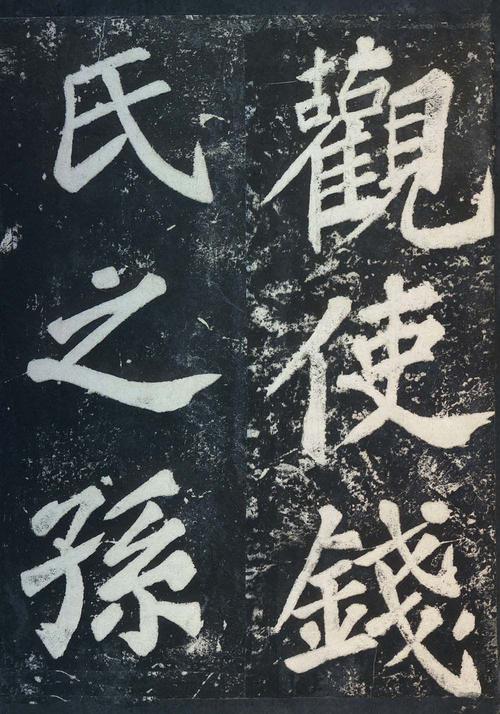 觀使錢
氏之孫